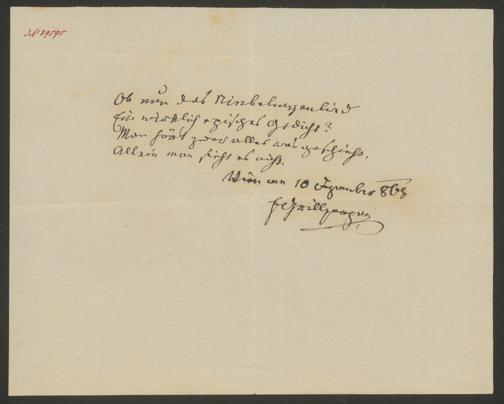 No 39595
Ob nun das Niebelungenlied
Ein wirklich episches Gedicht?
Man hört zwar alles was geschieht,
Allein man sieht es nicht.
Wien am 10 Dezember 868
FGrillparzer